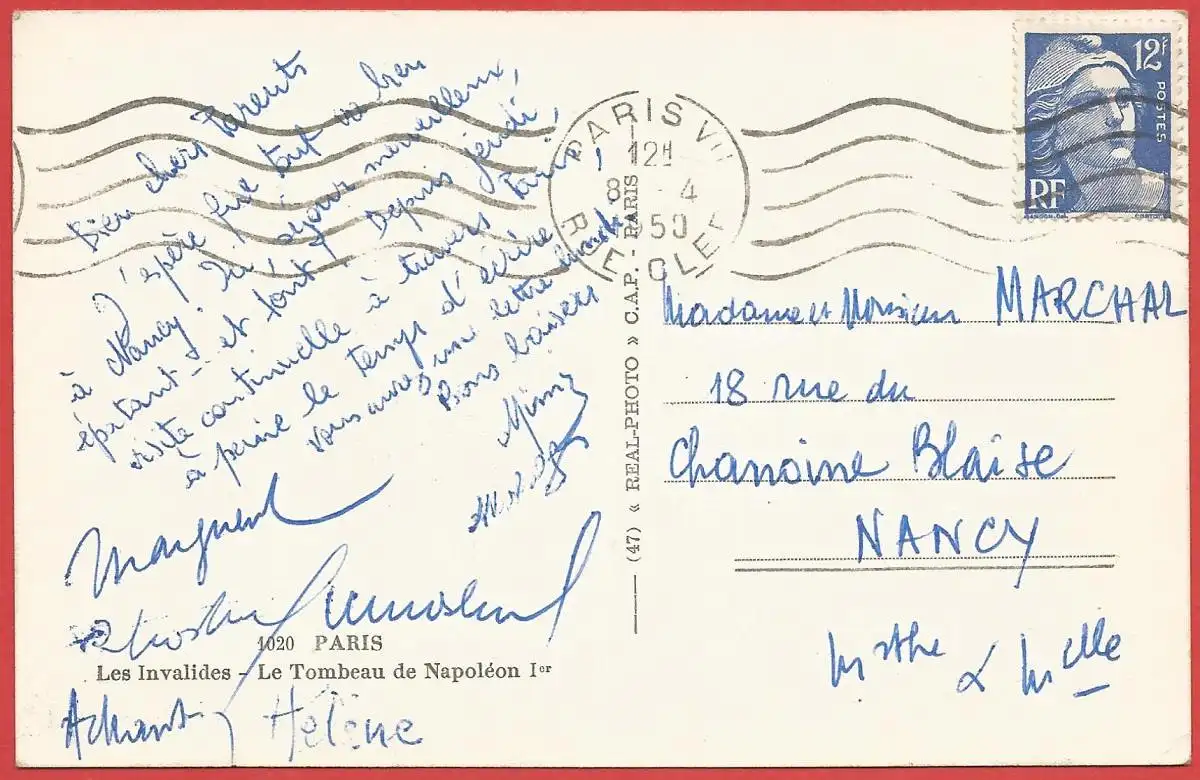 Bien chers Parents
J'espère que tout va bien
à Nancy. Ici, séjour merveilleux,
épatant - et tout! Depuis jeudi,
visite continuelle à travers Paris,
à peine le temps d'écrire
une lettre
Bons baisers
Mimy
Marguerite
1020 PARIS
Les Invalides - Le Tombeau de Napoléon Iᵉʳ
Hélène
(47) « REAL-PHOTO » C.A.P. - PARIS
PARIS VII
12H
8 - 4
1950
RUE CLER
12F
POSTES
RF
Madame et Monsieur MARCHAL
18 rue du
Chanoine Blaise
NANCY
Mthe & Mlle